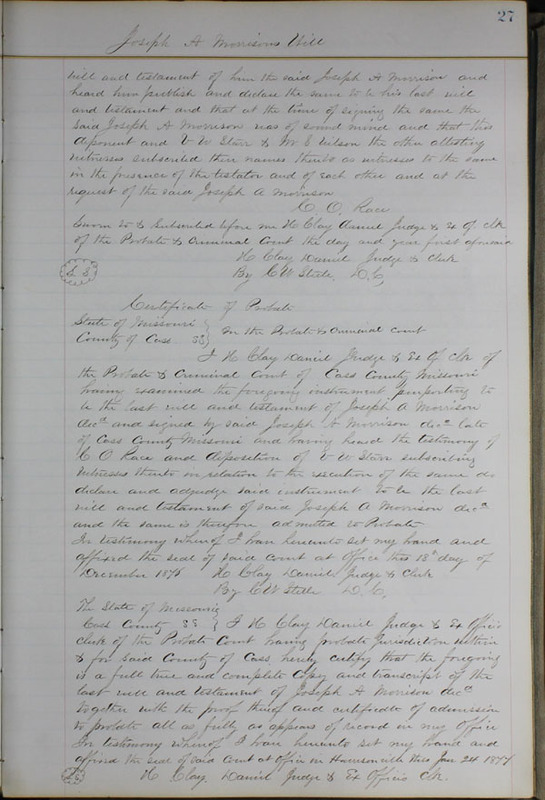 27
Joseph A Morrisons Will
will and testament of him the said Joseph A Morrison and
heard him publish and declare the same to be his last will
and testament and that at the time of signing the same the
said Joseph A Morrison was of sound mind and that this
deponent and V W Starr & W E Wilson the other attesting
witnesses subscribed their names thereto as witnesses to the same
in the presence of the testator and of each other and at the
request of the said Joseph A Morrison
C. O. Race
Sworn to & Subscribed before me H Clay Daniel Judge & Ex Of. Clk
of the Probate & Criminal Court the day and year first aforesaid
H Clay Daniel Judge & Clerk
L S By C W Steele, D. C,
Certificate of Probate
State of Missouri
County of Cass SS In the Probate & Criminal Court
I H Clay Daniel Judge & Ex Of Clk of
the Probate & Criminal Court of Cass County Missouri
having examined the foregoing instrument purporting to
be the last will and testament of Joseph A Morrison
decd and signed by said Joseph A Morrison decd late
of Cass County Missouri and having heard the testimony of
C O Race and deposition of V W Starr subscribing
witnesses thereto in relation to the execution of the same do
declare and adjudge said instrument to be the last
will and testament of said Joseph A Morrison decd
and the same is therefore admitted to Probate
In testimony whereof I have hereunto set my hand and
affixed the seal of said Court at Office this 18th day of
December 187 H Clay Daniel Judge & Clerk
By C W Steele D. C,
The State of Missouri
Cass County SS I H Clay Daniel Judge & Ex Officio
clerk of the Probate Court having probate jurisdiction within
& for said County of Cass hereby certify that the foregoing
is a full true and complete Copy and transcript of the
last will and testament of Joseph A Morrison decd
together with the proof thereof and certificate of admission
to probate all as fully as appears of record in my Office
In testimony whereof I have hereunto set my hand and
affixed the seal of said Court at office in Harrisonville Mo Jan 24 1877
LS H Clay Daniel Judge & Ex Officio Clk.